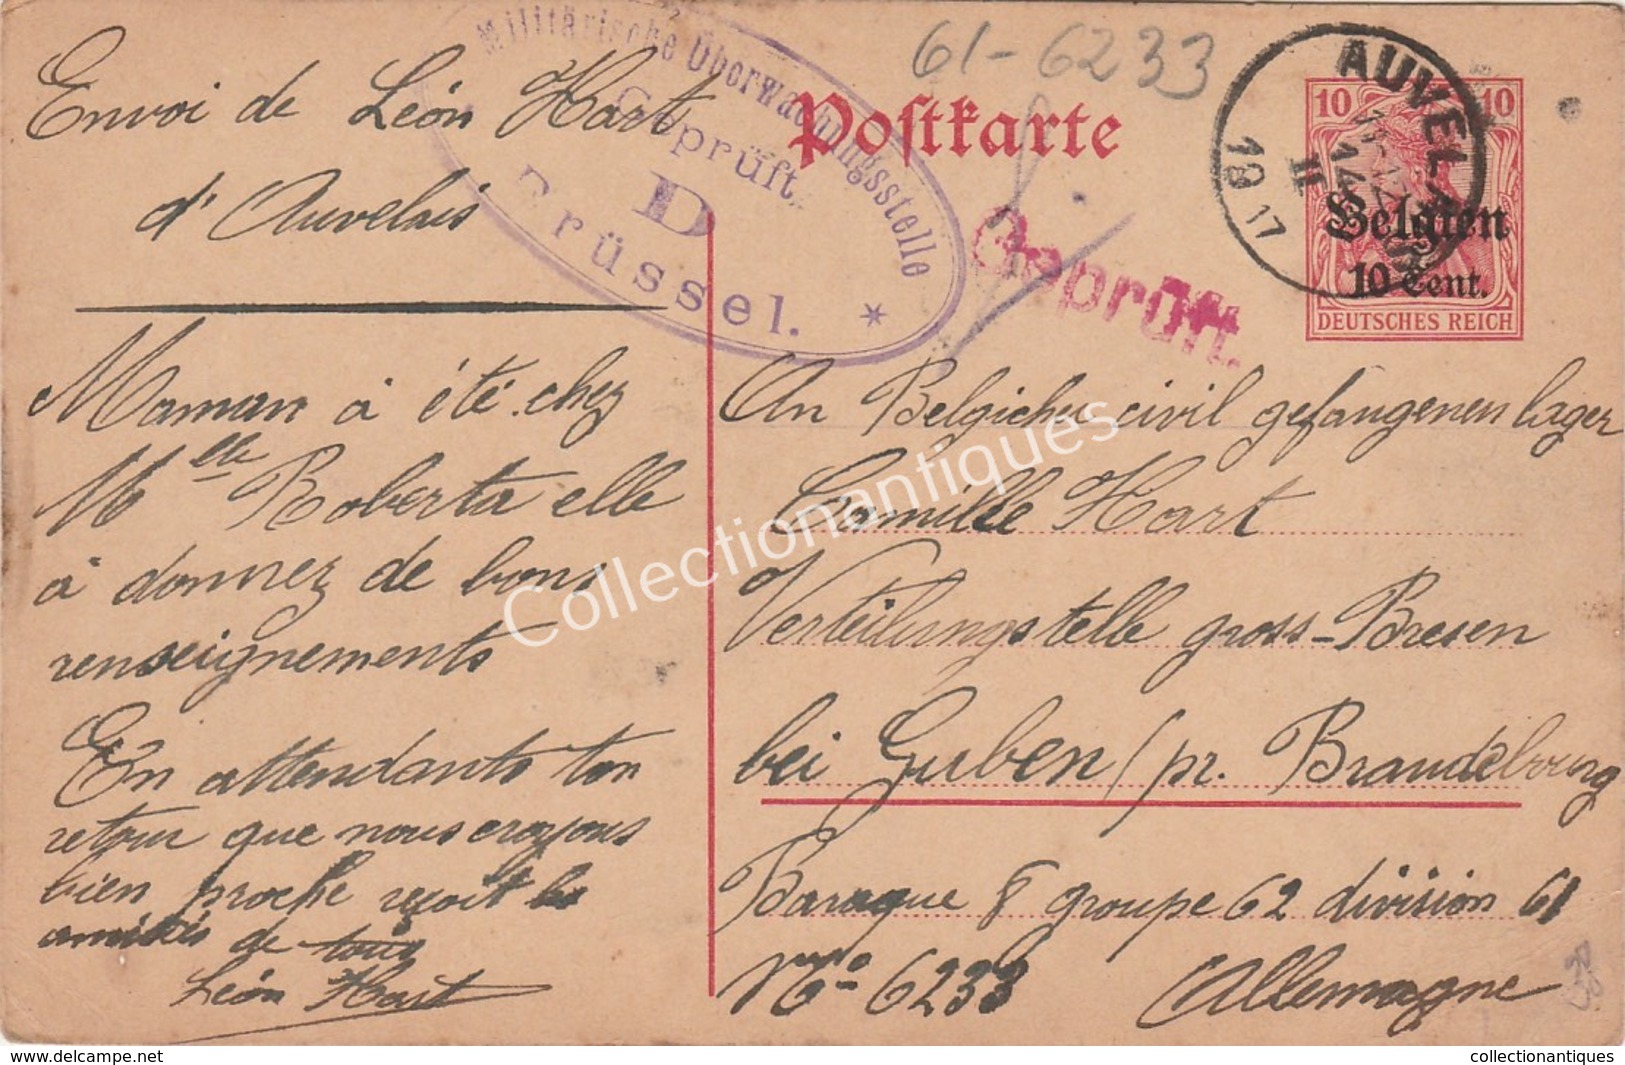 61-6233
Militärische Überwachungsstelle
Geprüft.
D
Brüssel.
Postkarte
Geprüft.
AUVELAIS
18 II 17
10 10
Belgien
10 Cent.
DEUTSCHES REICH
Envoi de Léon Hart
d'Auvelais
Maman à été chez
Melle Roberta elle
à donnez de bons
renseignements
En attendants ton
retour que nous croyons
bien proche reçoit les
amitiés de tous
Léon Hart
An Belgicher civil gefangenen lager
Camille Hart
Verteilungstelle gross-Bresen
bei Guben (pr. Brandebourg
Baraque 8 groupe 62 division 61
No 6233 Allemagne
Collectionantiques
delcampe.net
collectionantiques